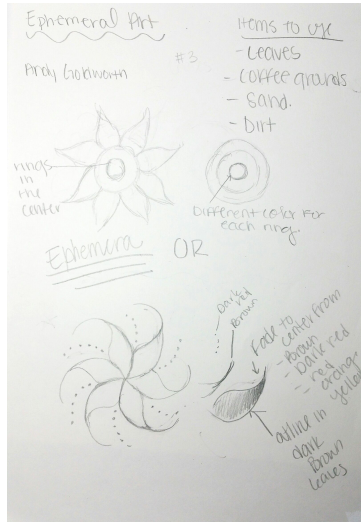 Ephemeral Art
Andy Goldworth
#3
Items to use
- Leaves
- Coffee grounds
- Sand.
- Dirt
rings
in
the
center
Different color for
each ring
Ephemera
OR
Dark
red
Brown
Fade to
center from
- Brown
- Dark red
- red
- orange
yellow
outline in
dark
Brown
leaves